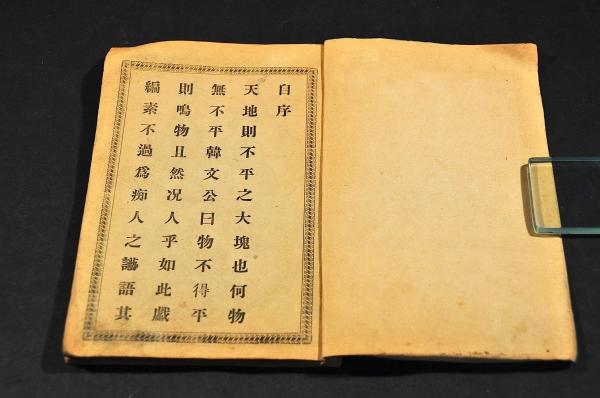 自序
天地則不平之大塊也何物
無不平韓文公曰物不得平
則鳴物且然况人乎如此戲
編素不過爲痴人之讝語其